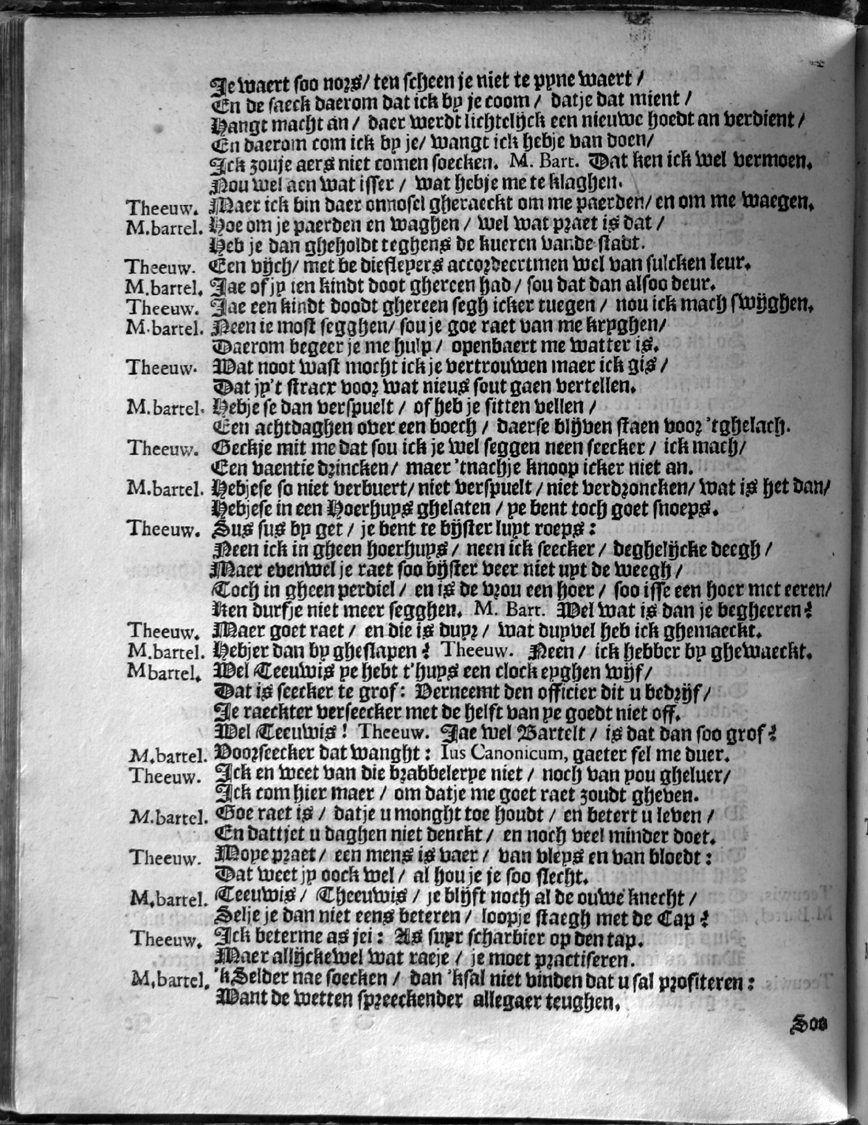 Je waert soo nors/ ten scheen je niet te pyne waert /
En de saeck daerom dat ick by je coom / datje dat mient /
Hangt macht an / daer werdt lichtelijck een nieuwe hoedt an verdient /
En daerom com ick by je/ wangt ick hebje van doen/
Ick zouje aers niet comen soecken. M. Bart. Dat ken ick wel vermoen.
Nou wel aen wat isser / wat hebje me te klaghen.
Theeuw. Maer ick bin daer onnosel gheraeckt om me paerden/ en om me waegen.
M.bartel. Hoe om je paerden en waghen / wel wat praet is dat /
Heb je dan gheholdt teghens de kueren vande stadt.
Theeuw. Een vijch/ met be dieflepers accordeertmen wel van sulcken leur.
M.bartel. Jae of jy ien kindt doot ghereen had / sou dat dan alsoo deur.
Theeuw. Jae een kindt doodt ghereen segh icker tuegen / nou ick mach swijghen.
M.bartel. Neen ie most segghen/ sou je goe raet van me kryghen/
Daerom begeer je me hulp / openbaert me watter is.
Theeuw. Wat noot wast mocht ick je vertrouwen maer ick gis /
Dat jy't stracx voor wat nieus sout gaen vertellen.
M.bartel. Hebje se dan verspuelt / of heb je sitten vellen /
Een achtdaghen over een boech / daerse blijven staen voor 'tghelach.
Theeuw. Geckje mit me dat sou ick je wel seggen neen seecker / ick mach/
Een vaentie drincken/ maer 'tnachje knoop icker niet an.
M.bartel. Hebjese so niet verbuert/ niet verspuelt / niet verdroncken/ wat is het dan/
Hebjese in een Hoerhuys ghelaten / ye bent toch goet snoeps.
Theeuw. Sus sus by get / je bent te bijster luyt roeps :
Neen ick in gheen hoerhuys / neen ick seecker / deghelijcke deegh /
Maer evenwel je raet soo bijster veer niet uyt de weegh /
Toch in gheen perdiel / en is de vrou een hoer / soo isse een hoer met eeren/
Ken durfje niet meer segghen. M. Bart. Wel wat is dan je begheeren?
Theeuw. Maer goet raet / en die is duyr / wat duyvel heb ick ghemaeckt.
M.bartel. Hebjer dan by gheslapen? Theeuw. Neen / ick hebber by ghewaeckt.
Mbartel. Wel Teeuwis ye hebt t'huys een clock eyghen wijf/
Dat is seecker te grof: Verneemt den officier dit u bedrijf/
Je raeckter verseecker met de helft van ye goedt niet off.
Wel Teeuwis! Theeuw. Jae wel Bartelt / is dat dan soo grof?
M.bartel. Voorseecker dat wanght : Ius Canonicum, gaeter sel me duer.
Theeuw. Ick en weet van die brabbelerye niet / noch van you gheluer/
Ick com hier maer / om datje me goet raet zoudt gheven.
M.bartel. Goe raet is / datje u monght toe houdt / en betert u leven /
En dattjet u daghen niet denckt / en noch veel minder doet.
Theeuw. Moye praet / een mens is vaer / van vleys en van bloedt :
Dat weet jy oock wel / al hou je je soo slecht.
M.bartel. Teeuwis / Theeuwis / je blijft noch al de ouwe knecht /
Selje je dan niet eens beteren / loopje staegh met de Cap?
Theeuw. Ick beterme as jei : As suyr scharbier op den tap.
Maer allijckewel wat raeje / je moet practiseren.
M.bartel. 'kSelder nae soecken / dan 'ksal niet vinden dat u sal profiteren :
Want de wetten spreeckender allegaer teughen.
Soo